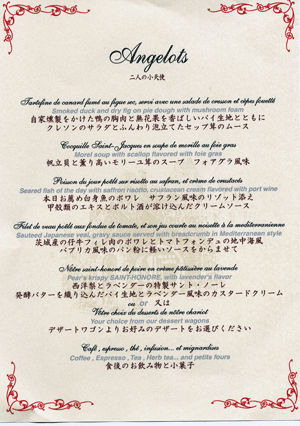 Angelots
二人の小天使
Tartefine de canard fumé au figue sec, servi avec une salade de cresson et cèpes fouetté
Smoked duck and dry fig on pie dough with mushroom foam
自家燻製をかけた鴨の胸肉と無花果を香ばしいパイ生地とともに
クレソンのサラダとふんわり泡立てたセップ茸のムース
Cocquille Saint-Jacques en soupe de morille au foie gras
Morel soup with scallop flavored with foie gras
帆立貝と薫り高いモリーユ茸のスープ フォアグラ風味
Poisson du jour poêlé sur risotto au safran, et crème de crustacés
Seared fish of the day with saffron risotto, crustacean cream flavored with port wine
本日お薦め白身魚のポワレ サフラン風味のリゾット添え
甲殻類のエキスとポルト酒が溶け込んだクリームソース
Filet de veau poêlé aux fondue de tomate, et son jus courte au noisette à la méditerranéenne
Sauteed Japanese veal, gravy sauce served with breadcrumb in Mediterranean style
茨城産の仔牛フィレ肉のポワレとトマトフォンデュの地中海風
パプリカ風味のパン粉に軽いソースをからませて
Nôtre saint-honoré de poire en crème pâtissière au lavende
Pear's krispy SAINT-HONORE, with lavender's flavor
西洋梨とラベンダーの特製サント・ノーレ
発酵バターを織り込んだパイ生地とラベンダー風味のカスタードクリーム
ou or 又は
Vôtre choix du desserts de nôtre chariot
Your choice from our dessert wagons
デザートワゴンよりお好みのデザートをお選びください
Café, espresso, thé, infusion... et mignardises
Coffee, Espresso, Tea, Herb tea... and petits fours
食後のお飲み物と小菓子